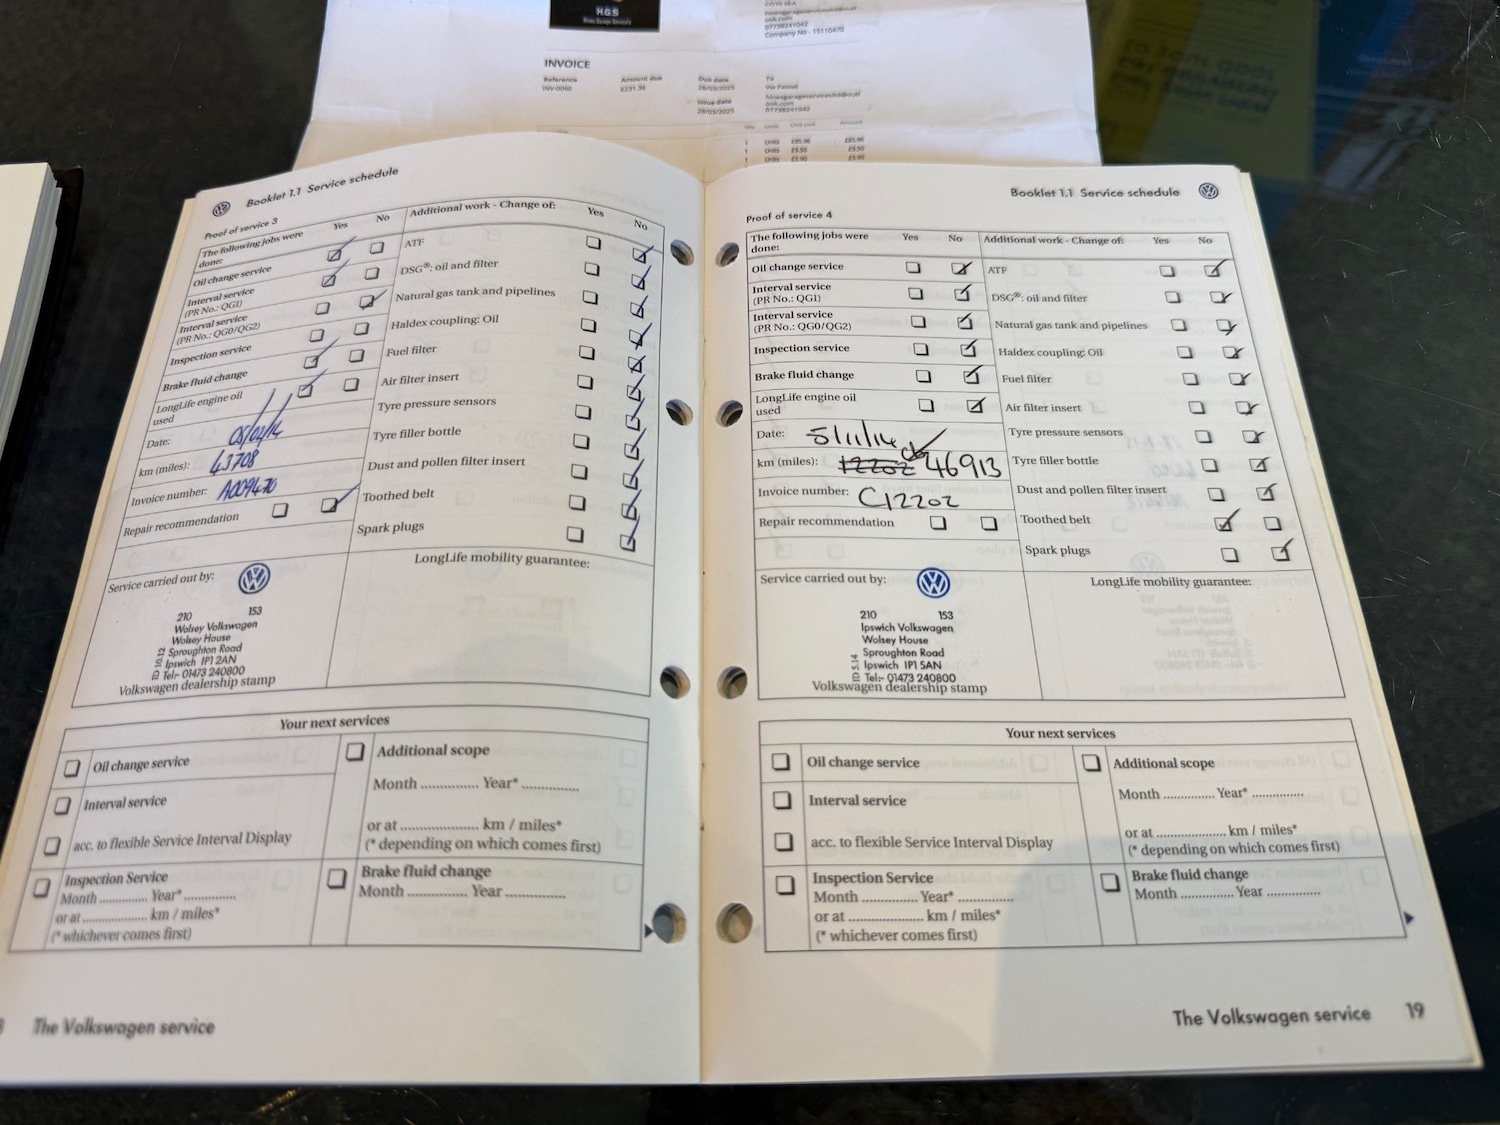 H.G.S
INVOICE
Reference
Amount due
Due date
To
INV-0060
£231.36
28/03/2025
Vw Passat
Issue date
28/03/2025
07738241042
Company No - 15110470
Qty Units Unit cost Amount
1 Units £85.96 £85.96
1 Units £9.50 £9.50
1 Units £5.90 £5.90
Booklet 1.1 Service schedule
Proof of service 3
The following jobs were done:
Yes No
Additional work - Change of:
Yes No
Oil change service
Interval service
(PR No.: QG1)
Interval service
(PR No.: QG0/QG2)
Inspection service
Brake fluid change
LongLife engine oil
used
Date: 05/02/14
km (miles): 43708
Invoice number: A009476
Repair recommendation
ATF
DSG®: oil and filter
Natural gas tank and pipelines
Haldex coupling: Oil
Fuel filter
Air filter insert
Tyre pressure sensors
Tyre filler bottle
Dust and pollen filter insert
Toothed belt
Spark plugs
Service carried out by:
LongLife mobility guarantee:
210 153
Wolsey Volkswagen
Wolsey House
Sproughton Road
Ipswich IP1 2AN
Tel:- 01473 240800
ID 10.12
Volkswagen dealership stamp
Your next services
Oil change service
Interval service
acc. to flexible Service Interval Display
Inspection Service
Month .............. Year* ...............
or at ...................... km / miles*
(* whichever comes first)
Additional scope
Month ............... Year* ...............
or at ..................... km / miles*
(* depending on which comes first)
Brake fluid change
Month .............. Year ..............
The Volkswagen service
Booklet 1.1 Service schedule
Proof of service 4
The following jobs were
done:
Yes No
Additional work - Change of:
Yes No
Oil change service
Interval service
(PR No.: QG1)
Interval service
(PR No.: QG0/QG2)
Inspection service
Brake fluid change
LongLife engine oil
used
Date: 5/11/14
km (miles): 12202 46913
Invoice number: C12202
Repair recommendation
ATF
DSG®: oil and filter
Natural gas tank and pipelines
Haldex coupling: Oil
Fuel filter
Air filter insert
Tyre pressure sensors
Tyre filler bottle
Dust and pollen filter insert
Toothed belt
Spark plugs
Service carried out by:
LongLife mobility guarantee:
210 153
Ipswich Volkswagen
Wolsey House
Sproughton Road
Ipswich IP1 5AN
Tel:- 01473 240800
ID 5.14
Volkswagen dealership stamp
Your next services
Oil change service
Interval service
acc. to flexible Service Interval Display
Inspection Service
Month .............. Year* ...............
or at ...................... km / miles*
(* whichever comes first)
Additional scope
Month .............. Year* ...............
or at ..................... km / miles*
(* depending on which comes first)
Brake fluid change
Month .............. Year ...............
The Volkswagen service 19